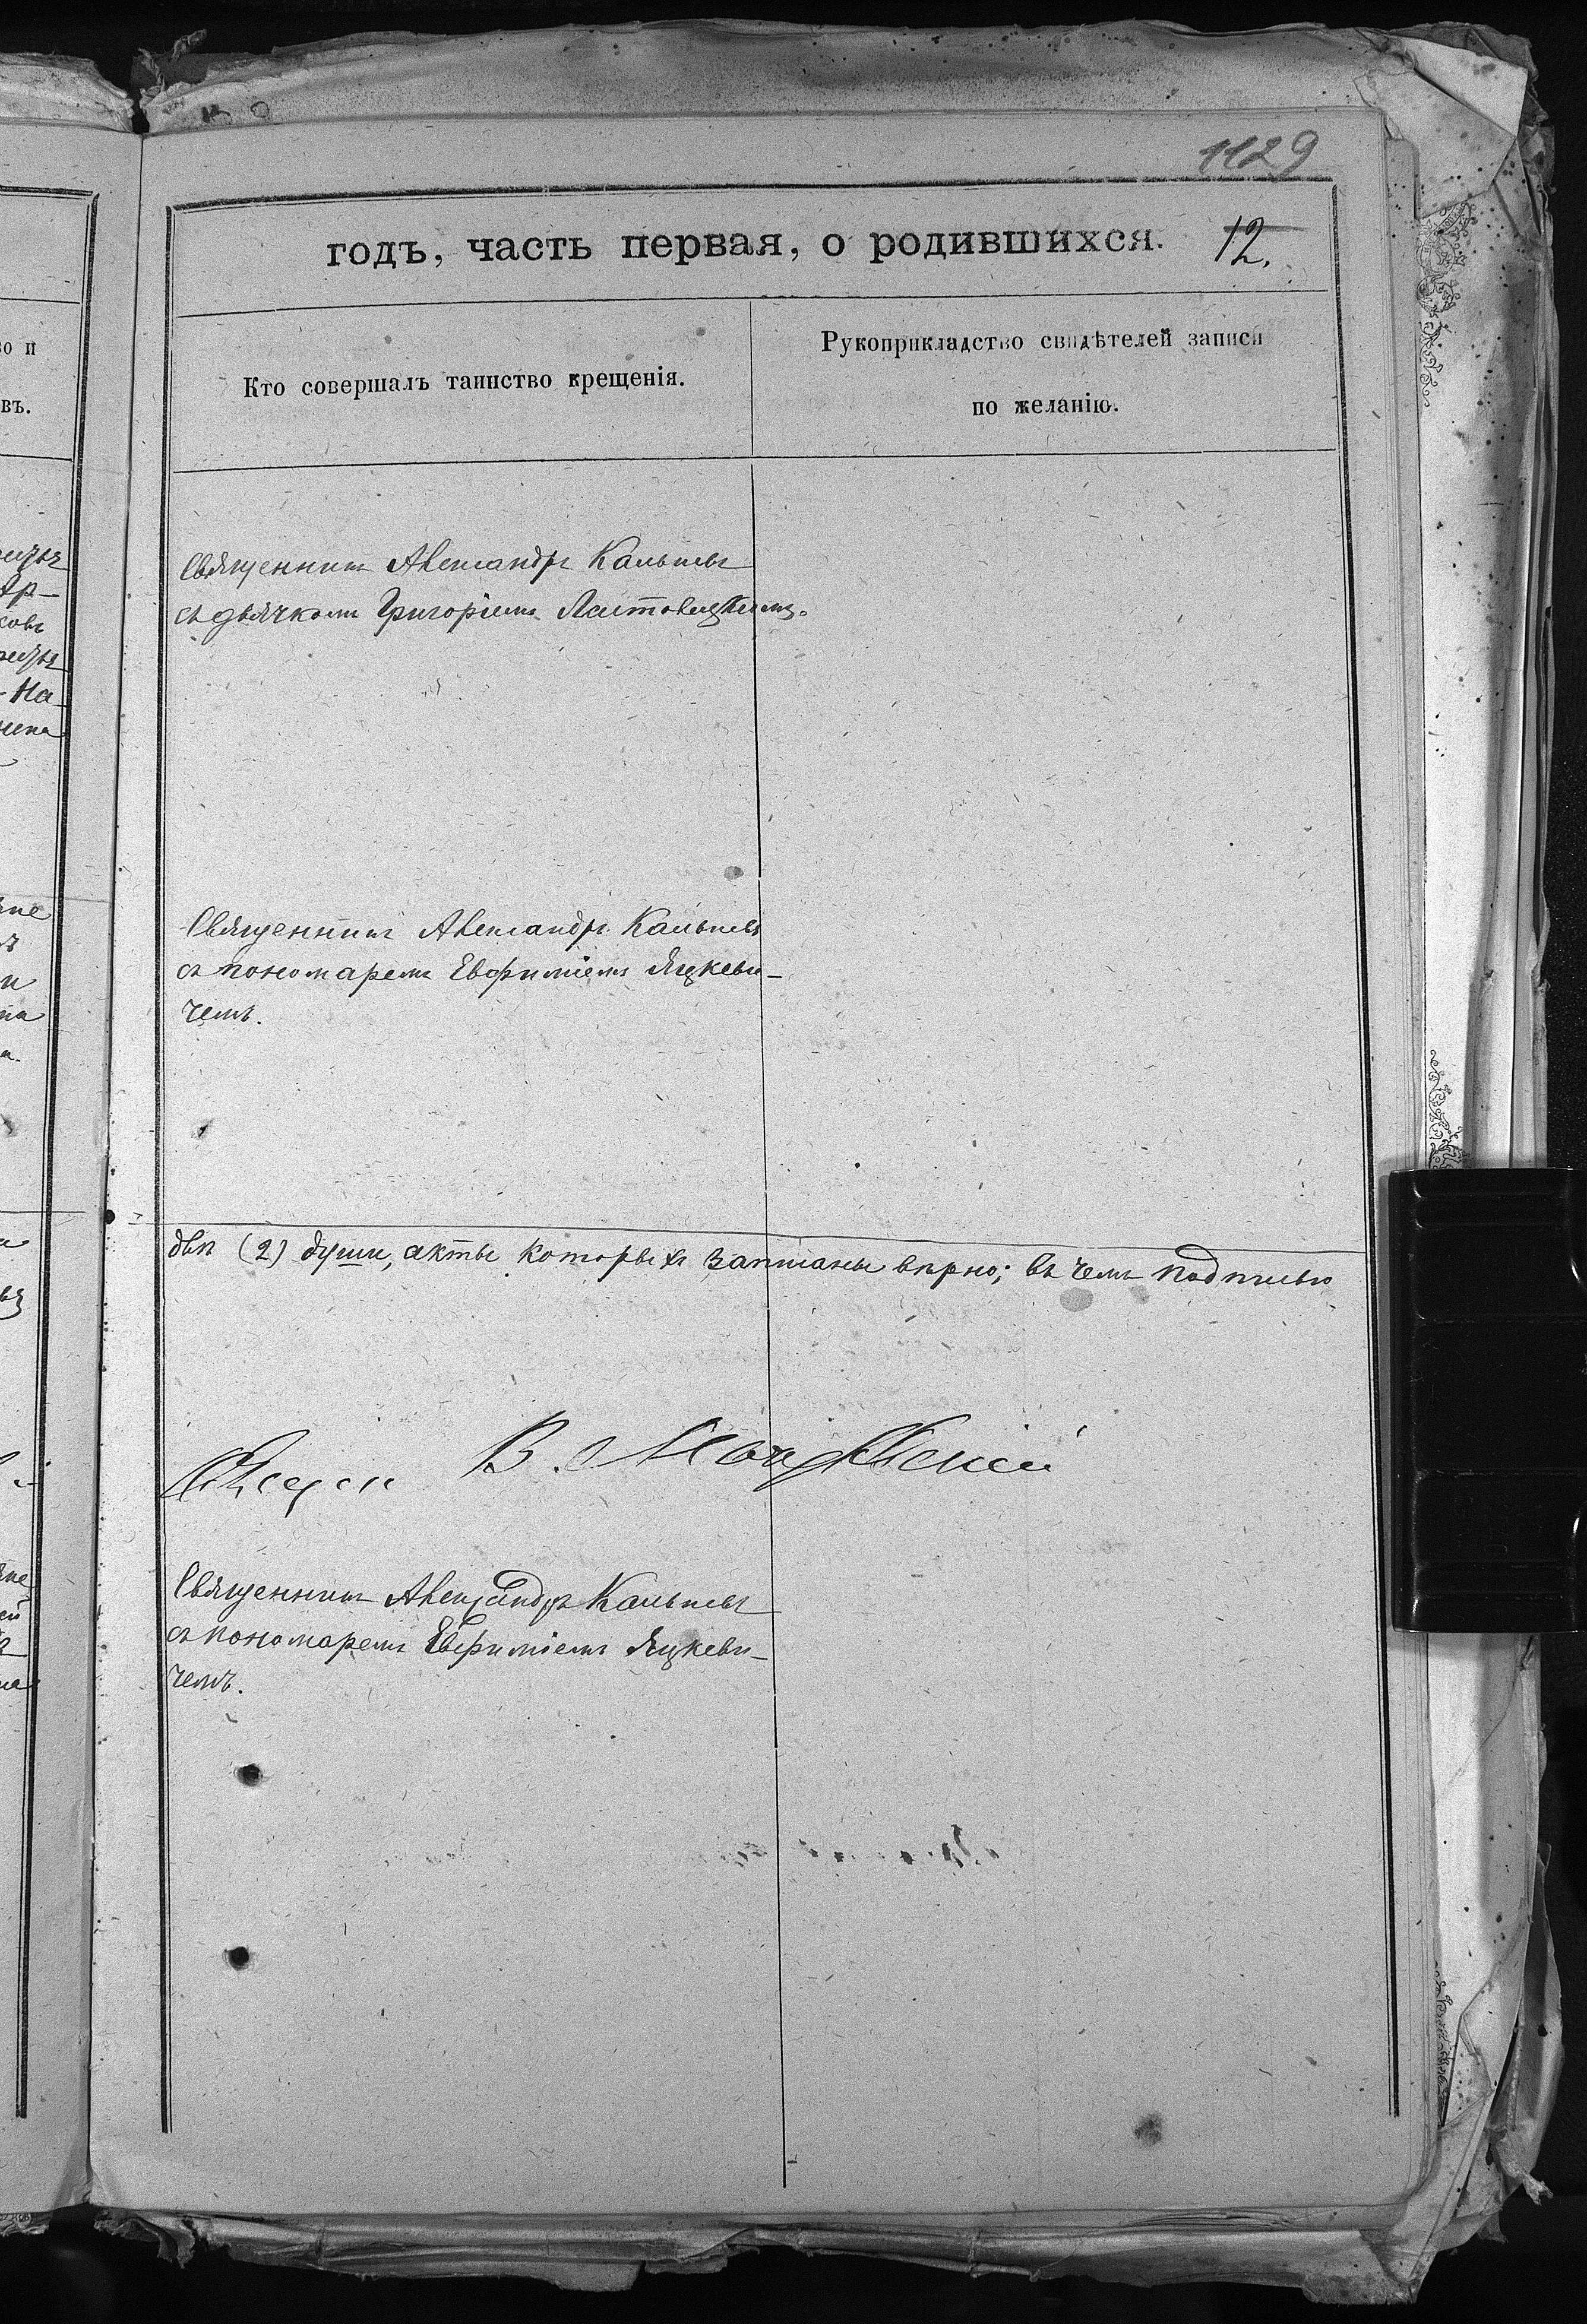 1129
годъ, часть первая, о родившихся. 12.
Кто совершалъ таинство крещенія.
Рукоприкладство свидѣтелей записи
по желанію.
Священникъ Александръ Кальневъ
съ дьячкомъ Григоріемъ Листовецкимъ.
Священникъ Александръ Кальневъ
съ пономаремъ Евфиміемъ Яцкеви-
чемъ.
двѣ (2) души, акты которыхъ записаны вѣрно; въ чемъ подписью
В.
Священникъ Александръ Кальневъ
съ пономаремъ Евфиміемъ Яцкеви-
чемъ.